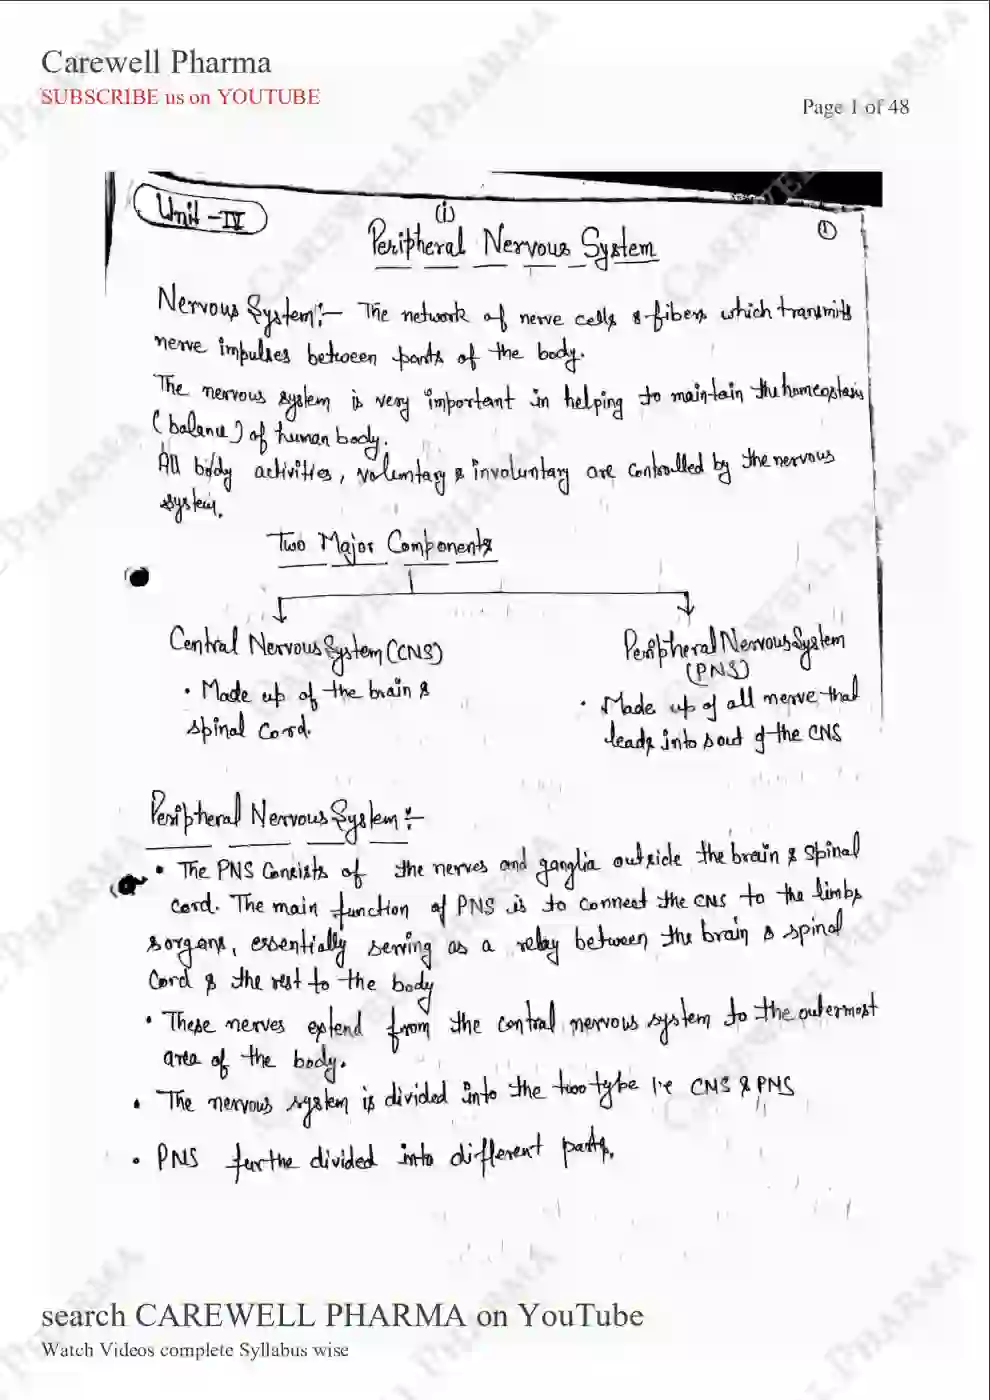 Carewell Pharma
SUBSCRIBE us on YOUTUBE
Page 1 of 48
Unit - IV
(i)
1
Peripheral Nervous System
Nervous System:- The network of nerve cells & fibers which transmits
nerve impulses between parts of the body.
The nervous system is very important in helping to maintain the homeostasis
(balance) of human body.
All body activities, voluntary & involuntary are controlled by the nervous
system.
Two Major Components
Central Nervous System (CNS)
• Made up of the brain &
spinal cord.
Peripheral Nervous System
(PNS)
• Made up of all nerve that
leads into & out of the CNS
Peripheral Nervous System:-
• The PNS Consists of the nerves and ganglia outside the brain & spinal
cord. The main function of PNS is to connect the CNS to the limbs
& organs, essentially serving as a relay between the brain & spinal
Cord & the rest to the body
• These nerves extend from the central nervous system to the outermost
area of the body.
• The nervous system is divided into the two type i.e CNS & PNS
• PNS furthe divided into different parts.
search CAREWELL PHARMA on YouTube
Watch Videos complete Syllabus wise
CAREWELL PHARMA